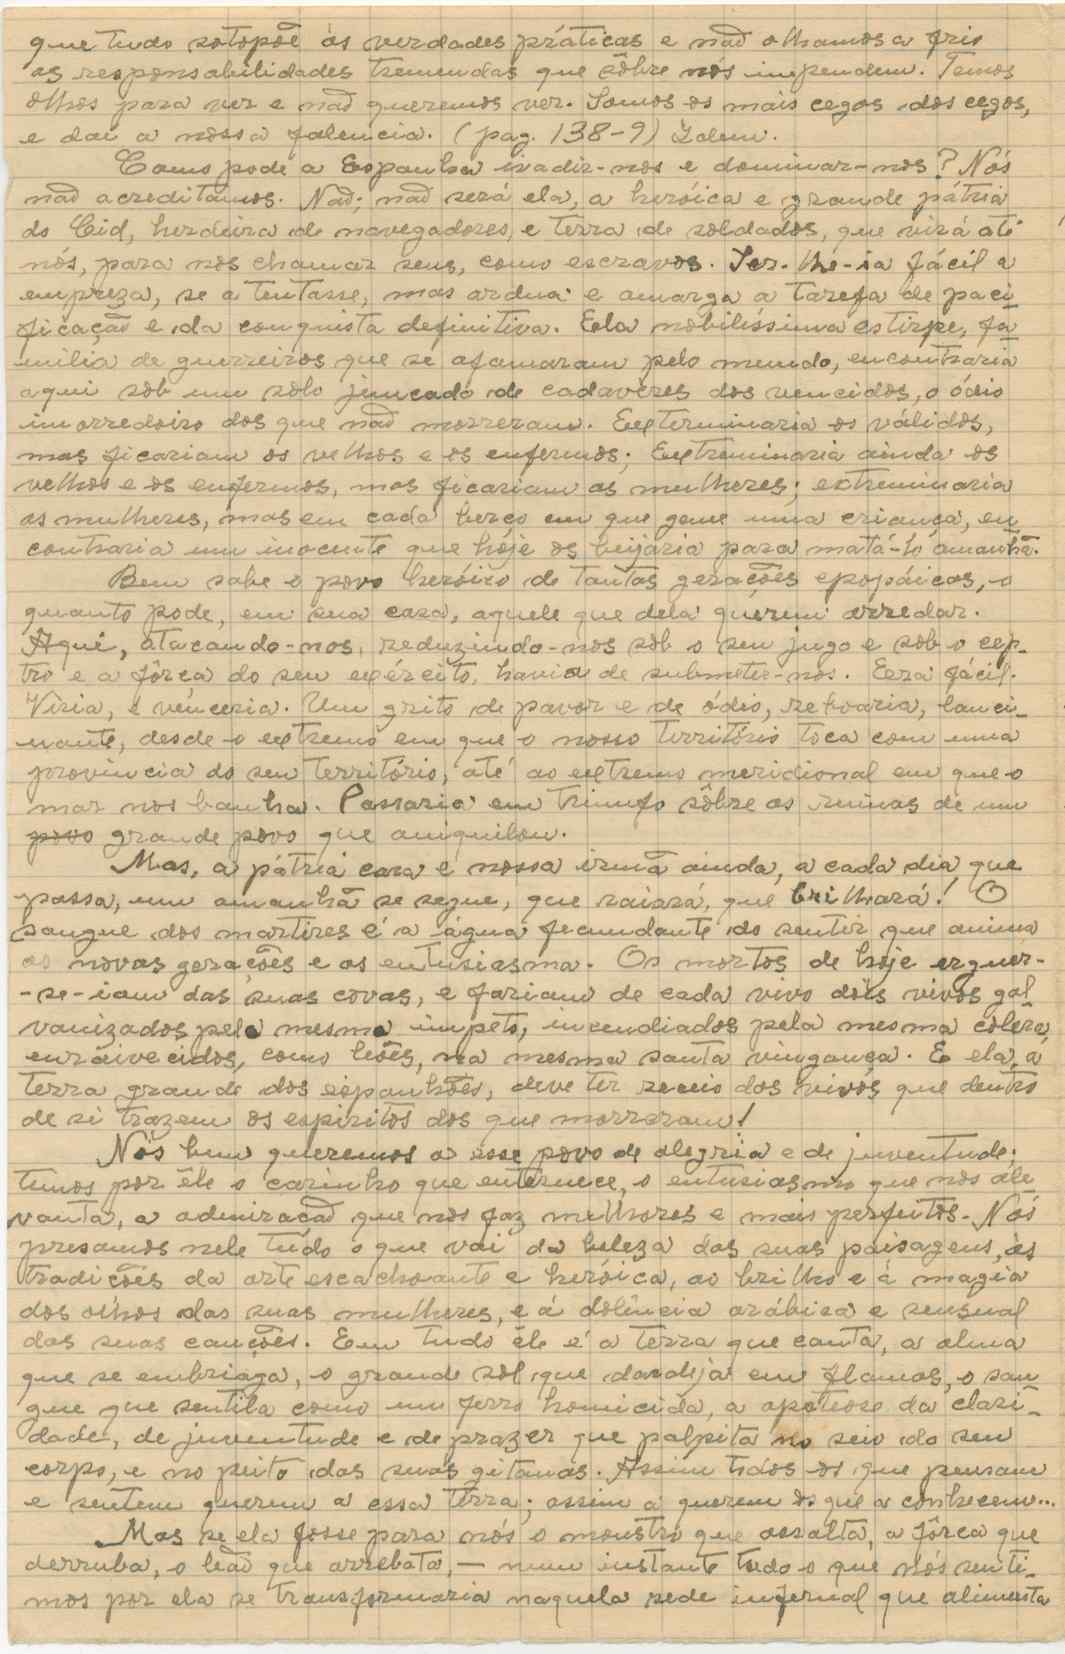 que tudo sotopõe às verdades práticas e não olhamos a frio
as responsabilidades tremendas que sôbre nós impendem. Temos
olhos para ver e não queremos ver. Somos os mais cegos dos cegos,
e dai a nossa falencia. (pag. 138-9) Idem.
Como pode a Espanha ivadir-nos e dominar-nos? Nós
não acreditamos. Não; não será ela, a heróica e grande pátria
do Cid, herdeira de navegadores, e terra de soldados, que virá até
nós, para nos chamar seus, como escravos. Ser-lhe-ia fácil a
empreza, se a tentasse, mas ardua e amarga a tarefa de paci
ficação e da conquista definitiva. Ela nobilíssima estirpe, fa
milia de guerreiros que se afamaram pelo mundo, encontraria
aqui sob um solo juncado de cadavéres dos vencidos, o ódio
imorredoiro dos que não morreram. Exterminaria os válidos,
mas ficariam os velhos e os enfermos; Extreminaria ainda os
velhos e os enfermos, mas ficariam as mulheres; extreminaria
as mulheres, mas em cada berço em que geme uma criança, en
contraria um inocente que hoje os beijaria para matá-lo amanhã.
Bem sabe o povo heróico de tantas gerações epopáicas, o
quanto pode, em sua casa, aquele que dela querem arredar.
Aqui, atacando-nos, reduzindo-nos sob o seu jugo e sob o cep-
tro e a fôrça do seu exército, havia de submeter-nos. Era fácil.
Viria, e venceria. Um grito de pavor e de ódio, retoaria, lanci-
nante, desde o extremo em que o nosso território toca com uma
provincia do seu território, até ao extremo meridional em que o
mar nos banha. Passaria em triunfo sôbre as ruinas de um
povo grande povo que aniquilou.
Mas, a pátria cara é nossa irmã ainda, a cada dia que
passa, um amanhã se segue, que raiará, que brilhará! O
sangue dos martires é a água fecundante do sentir que anima
as novas gerações e as entusiasma. Os mortos de hoje erguer-
-se-iam das suas covas, e fariam de cada vivo dois vivos gal
vanizados pelo mesmo impeto, incendiados pela mesma cólera,
enraivecidos, como leões, na mesma santa vingança. E ela, a
terra grande dos espanhóes, deve ter receio dos vivos que dentro
de si trazem os espiritos dos que morreram!
Nós bem queremos a esse povo de alegria e de juventude;
temos por êle o carinho que enternece, o entusiasmo que nos ale
vanta, a admiração que nos faz melhores e mais perfeitos. Nós
presamos nele tudo o que vai da beleza das suas paisagens, às
tradições da arte escachoante e heróica, ao brilho e á magia
dos olhos das suas mulheres, e á dolência arábica e sensual
das suas canções. Em tudo êle é a terra que canta, a alma
que se embriaga, o grande sol que dardeja em flamas, o san
gue que sentila como um ferro homicida, a apoteose da clari-
dade, de juventude e de prazer que palpita no seio do seu
corpo, e no peito das suas gitanas. Assim todos os que pensam
e sentem querem a essa terra; assim a querem os que a conhecem...
Mas se ela fosse para nós o monstro que assalta, a fôrca que
derruba, o leão que arrebata, — num instante tudo o que nós senti-
mos por ela se transformaria naquela sede infernal que alimenta